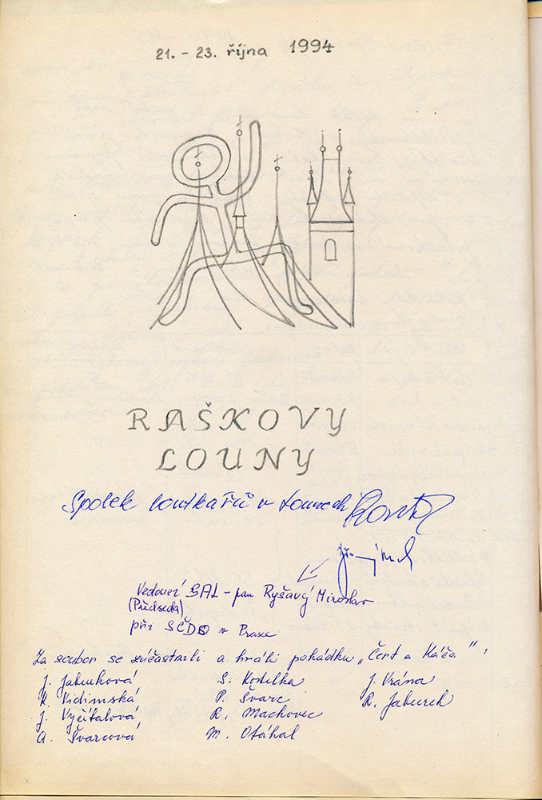 21. - 23. října 1994
RAŠKOVY
LOUNY
Spolek loutkářů v Lounech
Vedoucí SAL - pan Ryšavý Miroslav
(Předseda)
při SČDO v Praze
Za soubor se zúčastnili a hráli pohádku „Čert a Káča":
J. Jabůrková S. Kostelka J. Vrána
K. Vidimská P. Švarc R. Jaburek
J. Vyčítalová R. Machovec
A. Švarcová M. Otáhal